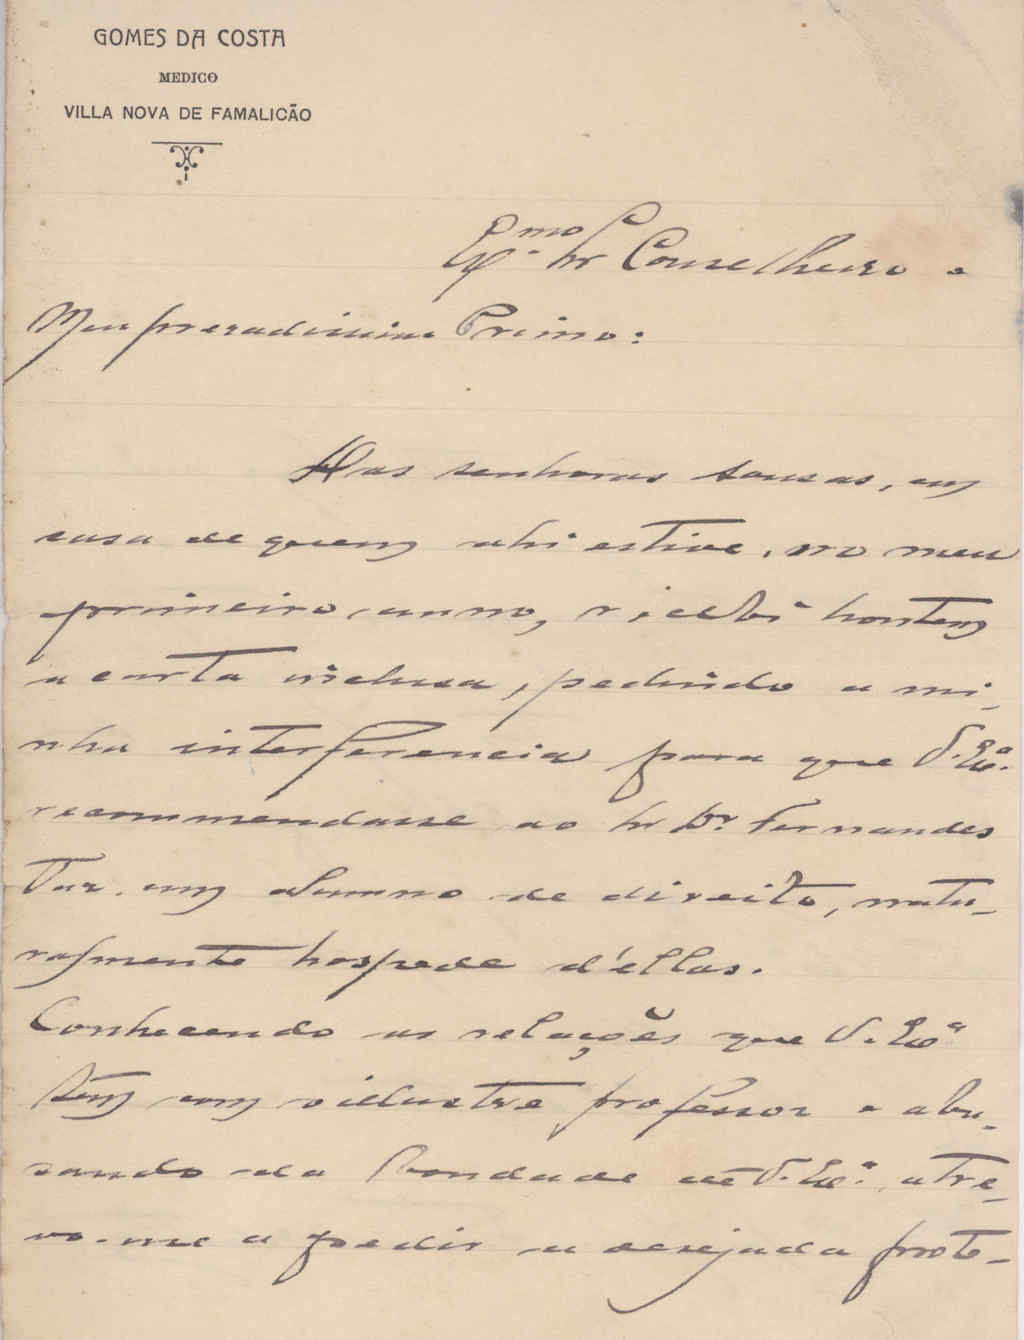 GOMES DA COSTA
MEDICO
VILLA NOVA DE FAMALICÃO
Exmo Sr Conselheiro e
Meu presadissimo Primo:
Das senhoras Sousas, em
casa de quem ahi estive, no meu
primeiro anno, recebi hontem
a carta inclusa, pedindo a mi-
nha interferencia para que V. Exª
recommendasse ao Sr Dr Fernandes
Vaz um alumno de direito, natu-
ralmente hospede d'ellas.
Conhecendo as relações que V. Exª
tem com o illustre professor e abu-
sando da bondade de V. Exª, atre-
vo-me a pedir a desejada prote-